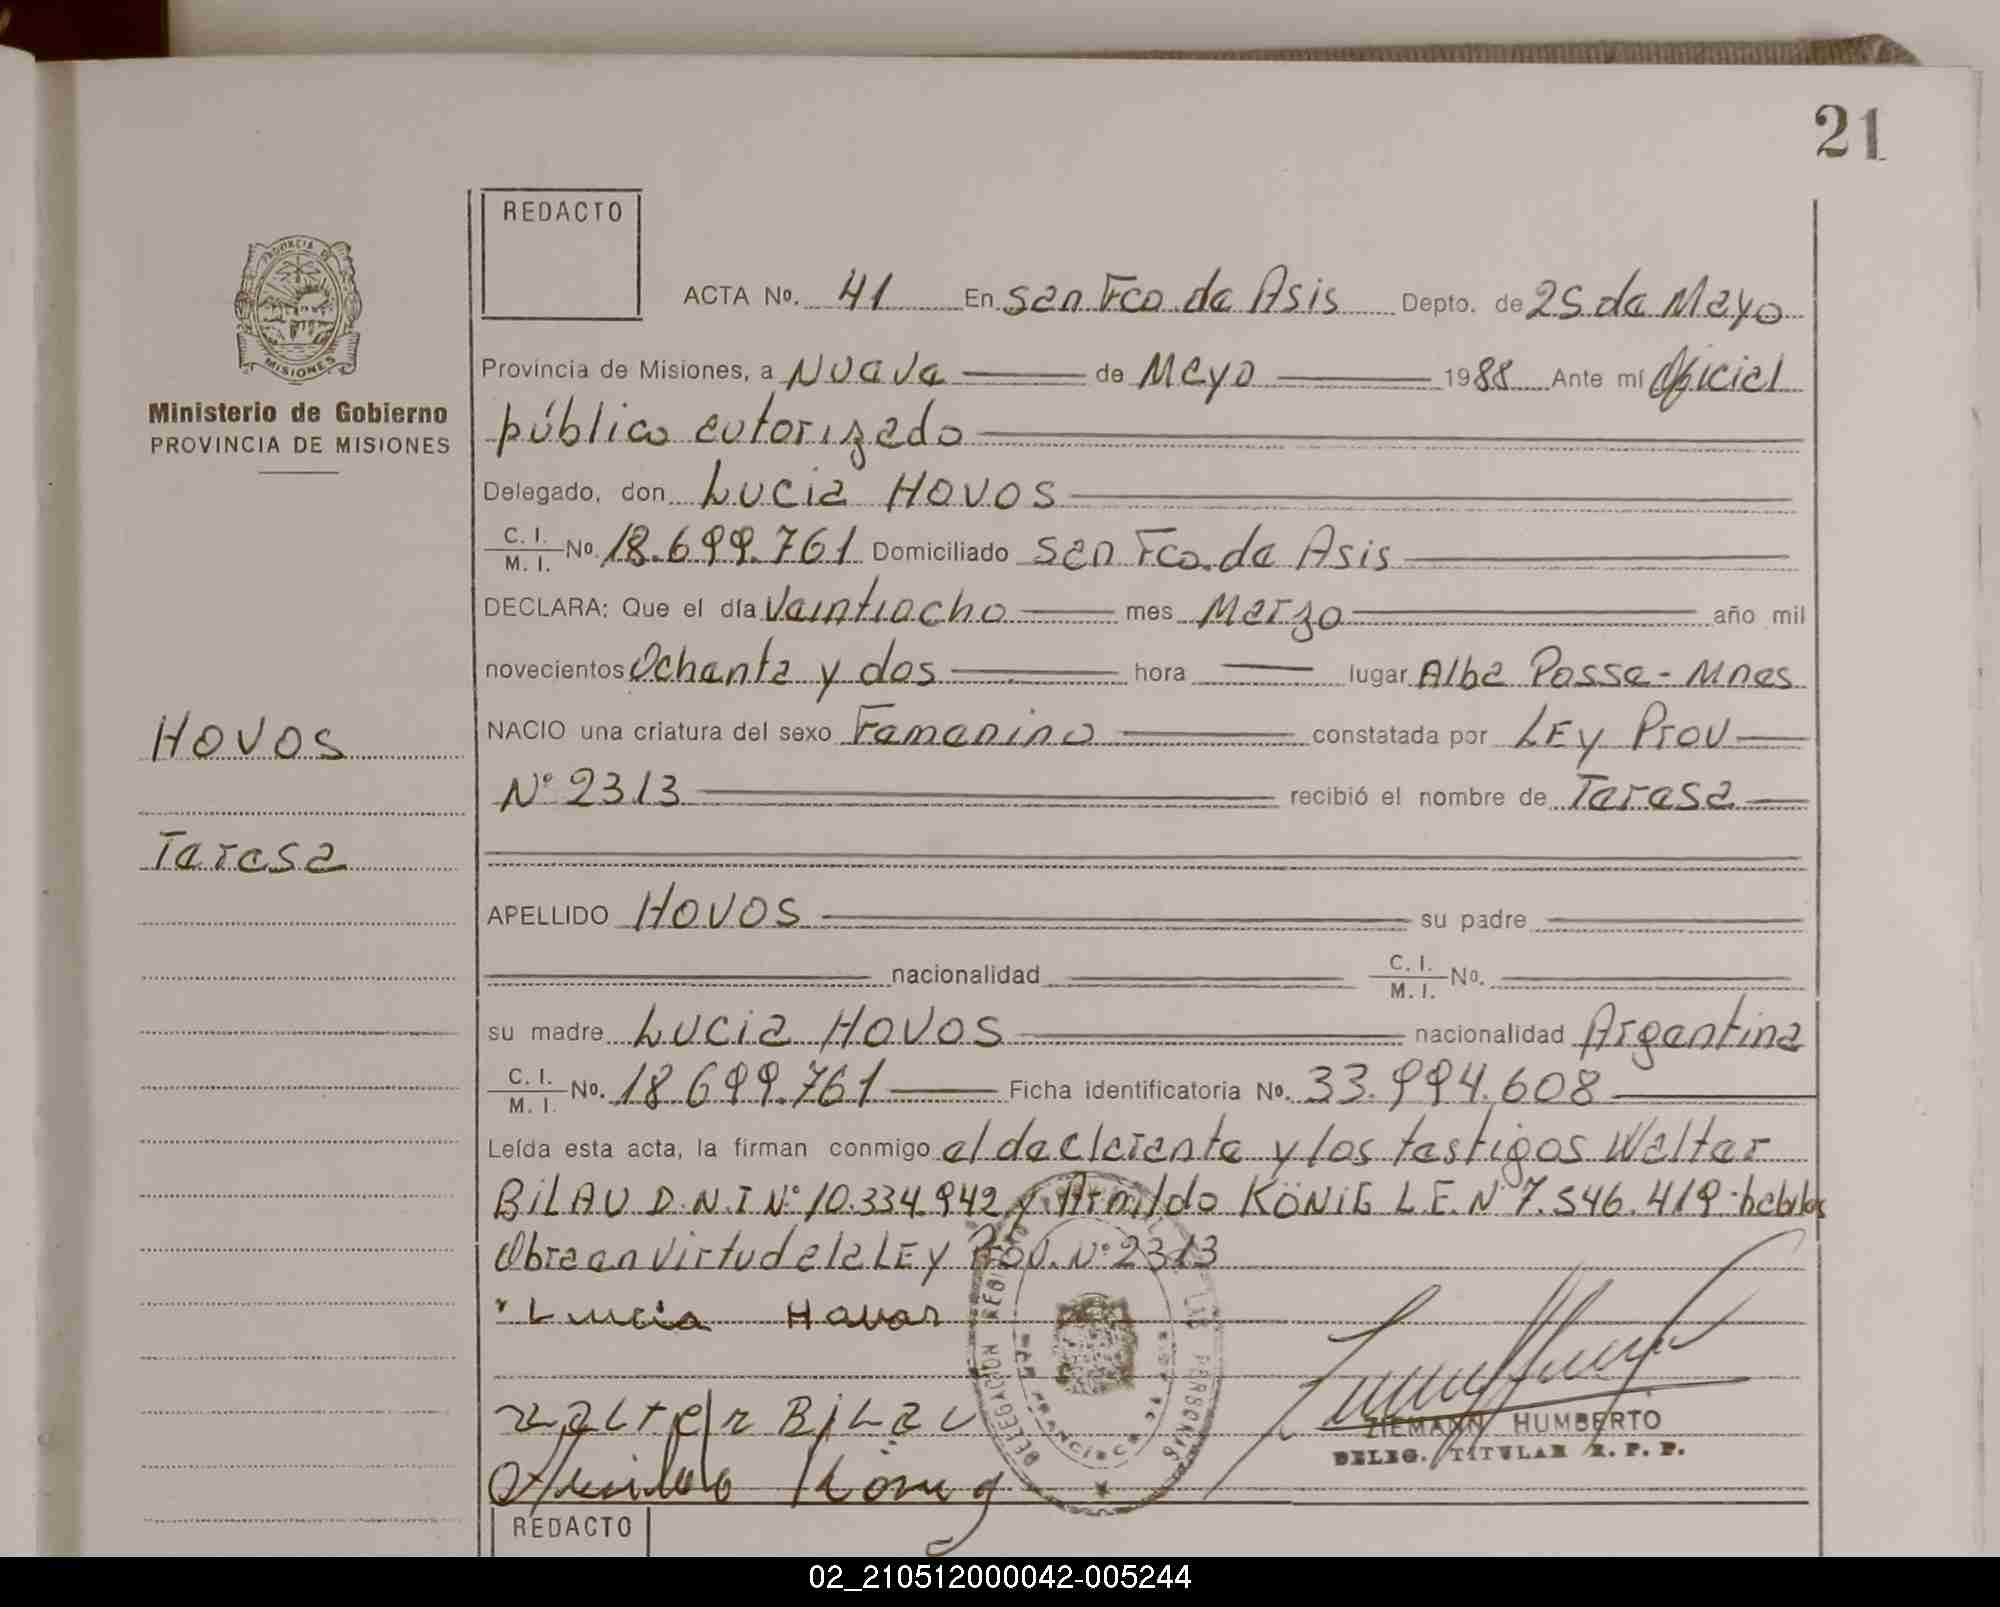 21
REDACTO
PROVINCIA DE
MISIONES
Ministerio de Gobierno
PROVINCIA DE MISIONES
ACTA No. 41 En San Fco. de Asis Depto. de 25 de Mayo
Provincia de Misiones, a Nueve de Mayo 1988 Ante mí Oficial
público autorizado
Delegado, don Lucia HOVOS
C. I. / M. I. No. 18.699.761 Domiciliado San Fco. de Asis
DECLARA: Que el día Veintiocho mes Marzo año mil
novecientos Ochenta y dos hora lugar Alba Posse - Mnes
HOVOS
NACIO una criatura del sexo Femenino constatada por LEy Prov
Nº 2313 recibió el nombre de Teresa
Teresa
APELLIDO HOVOS su padre
nacionalidad C. I. / M. I. No.
su madre Lucia HOVOS nacionalidad Argentina
C. I. / M. I. No. 18.699.761 Ficha identificatoria No. 33.994.608
Leída esta acta, la firman conmigo el declarante y los testigos Walter
BiLAU D.N.I Nº 10.334.942 y Armildo KÖNiG L.E. Nº 7.546.419
Obra en virtud de la LEy Prov. Nº 2313
Lucia Hovos
Walter BiLau
König
ZIEMANN HUMBERTO
DELEG. TITULAR R. P. P.
REDACTO
02_210512000042-005244